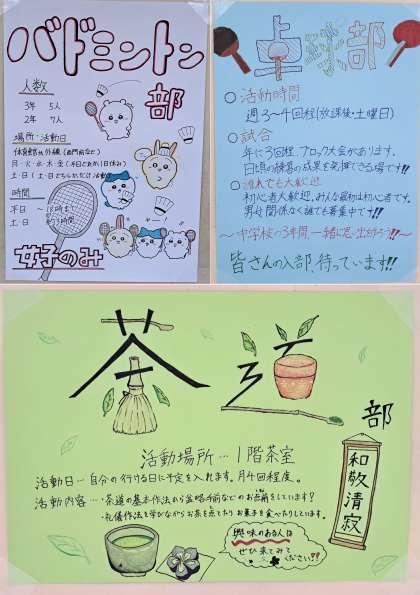 バドミントン
部
人数
3年 5人
2年 7人
場所・活動日
月・火・水・木・金
土・日
時間
平日 ～18時まで
土・日 約3時間
女子のみ
卓球部
○活動時間
週3～4回程(放課後・土曜日)
○試合
年に3回程、ブロック大会があります。
日頃の練習の成果を発揮できる場です!!
大歓迎
初心者大歓迎。みんな最初は初心者です。
男女関係なく誰でも募集中です!!
～中学校の3年間一緒に思い出作ろう!!～
皆さんの入部、待っています!!
茶道
部
和敬清寂
活動場所…1階茶室
活動日…自分の行ける日に予定を入れます。月4回程度。
活動内容…・茶道の基本作法から盆略手前などのお点前をしています!
・礼儀作法を学びながらお茶を点てたりお菓子を食べたりしています。
興味のある人は
ぜひ来てみて
ください!!